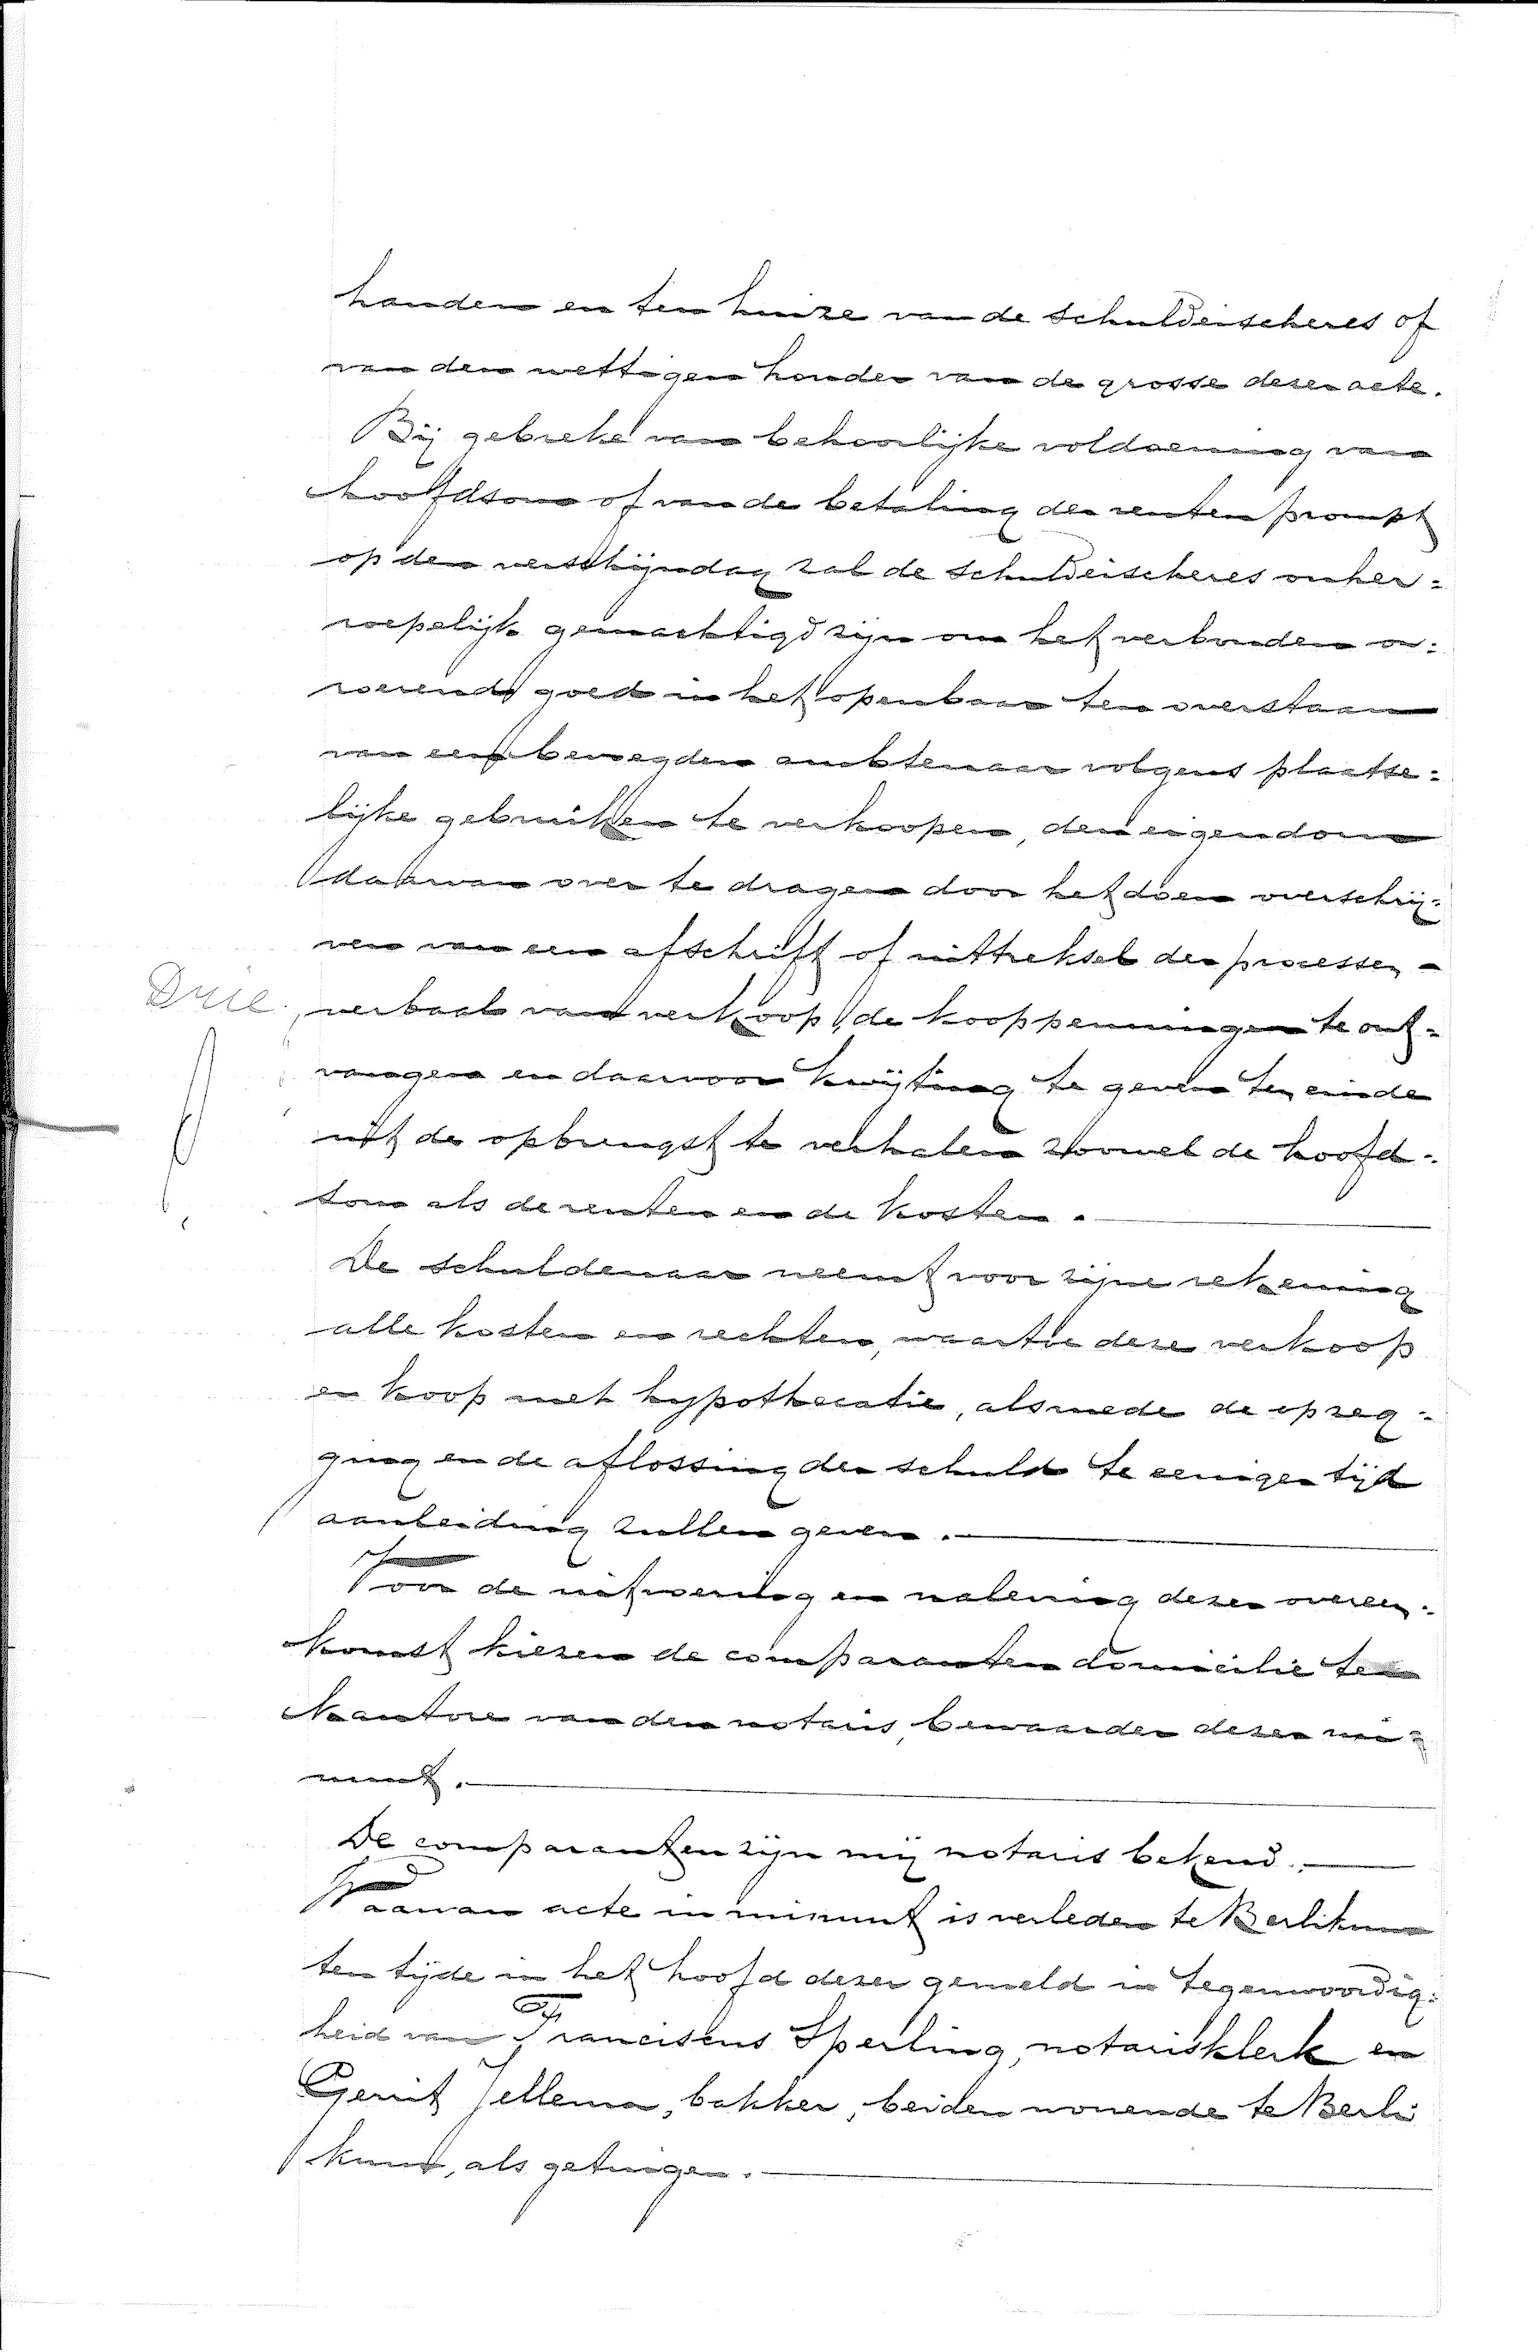 handen en ten huize van de schuldeischeres of
van den wettigen houder van de grosse dezer acte.
Bij gebreke van behoorlijke voldoening van
hoofdsom of van de betaling der renten prompt
op den verschijndag zal de schuldeischeres onher=
roepelijk gemachtigd zijn om het verbonden on=
roerend goed in het openbaar ten overstaan
van een bevoegden ambtenaar volgens plaatse=
lijke gebruiken te verkoopen, den eigendom
daarvan over te dragen door het doen overschrij=
ven van een afschrift of uittreksel der processen-
Drie verbaal van verkoop, de kooppenningen te ont=
vangen en daarvoor kwijting te geven ten einde
uit de opbrengst te verhalen zoowel de hoofd=
som als de renten en de kosten.
De schuldenaar neemt voor zijne rekening
alle kosten en rechten, waartoe deze verkoop
en koop met hypothecatie, alsmede de opzeg=
ging en de aflossing der schuld te eeniger tijd
aanleiding zullen geven.
Voor de uitvoering en naleving dezer overeen=
komst kiezen de comparanten domicilie ten
kantore van den notaris, bewaarder dezer mi=
nuut.
De comparanten zijn mij notaris bekend.
Waarvan acte in minuut is verleden te Berlikum
ten tijde in het hoofd dezer gemeld in tegenwoordig=
heid van Franciscus Sperling, notarisklerk en
Gerrit Jellema, bakker, beiden wonende te Berli
kum, als getuigen.